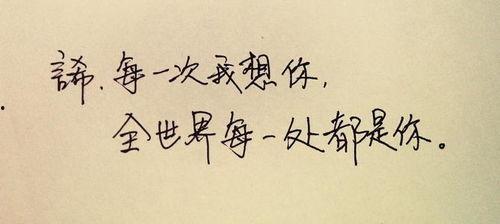 言希、每一次我想你，
全世界每一处都是你。